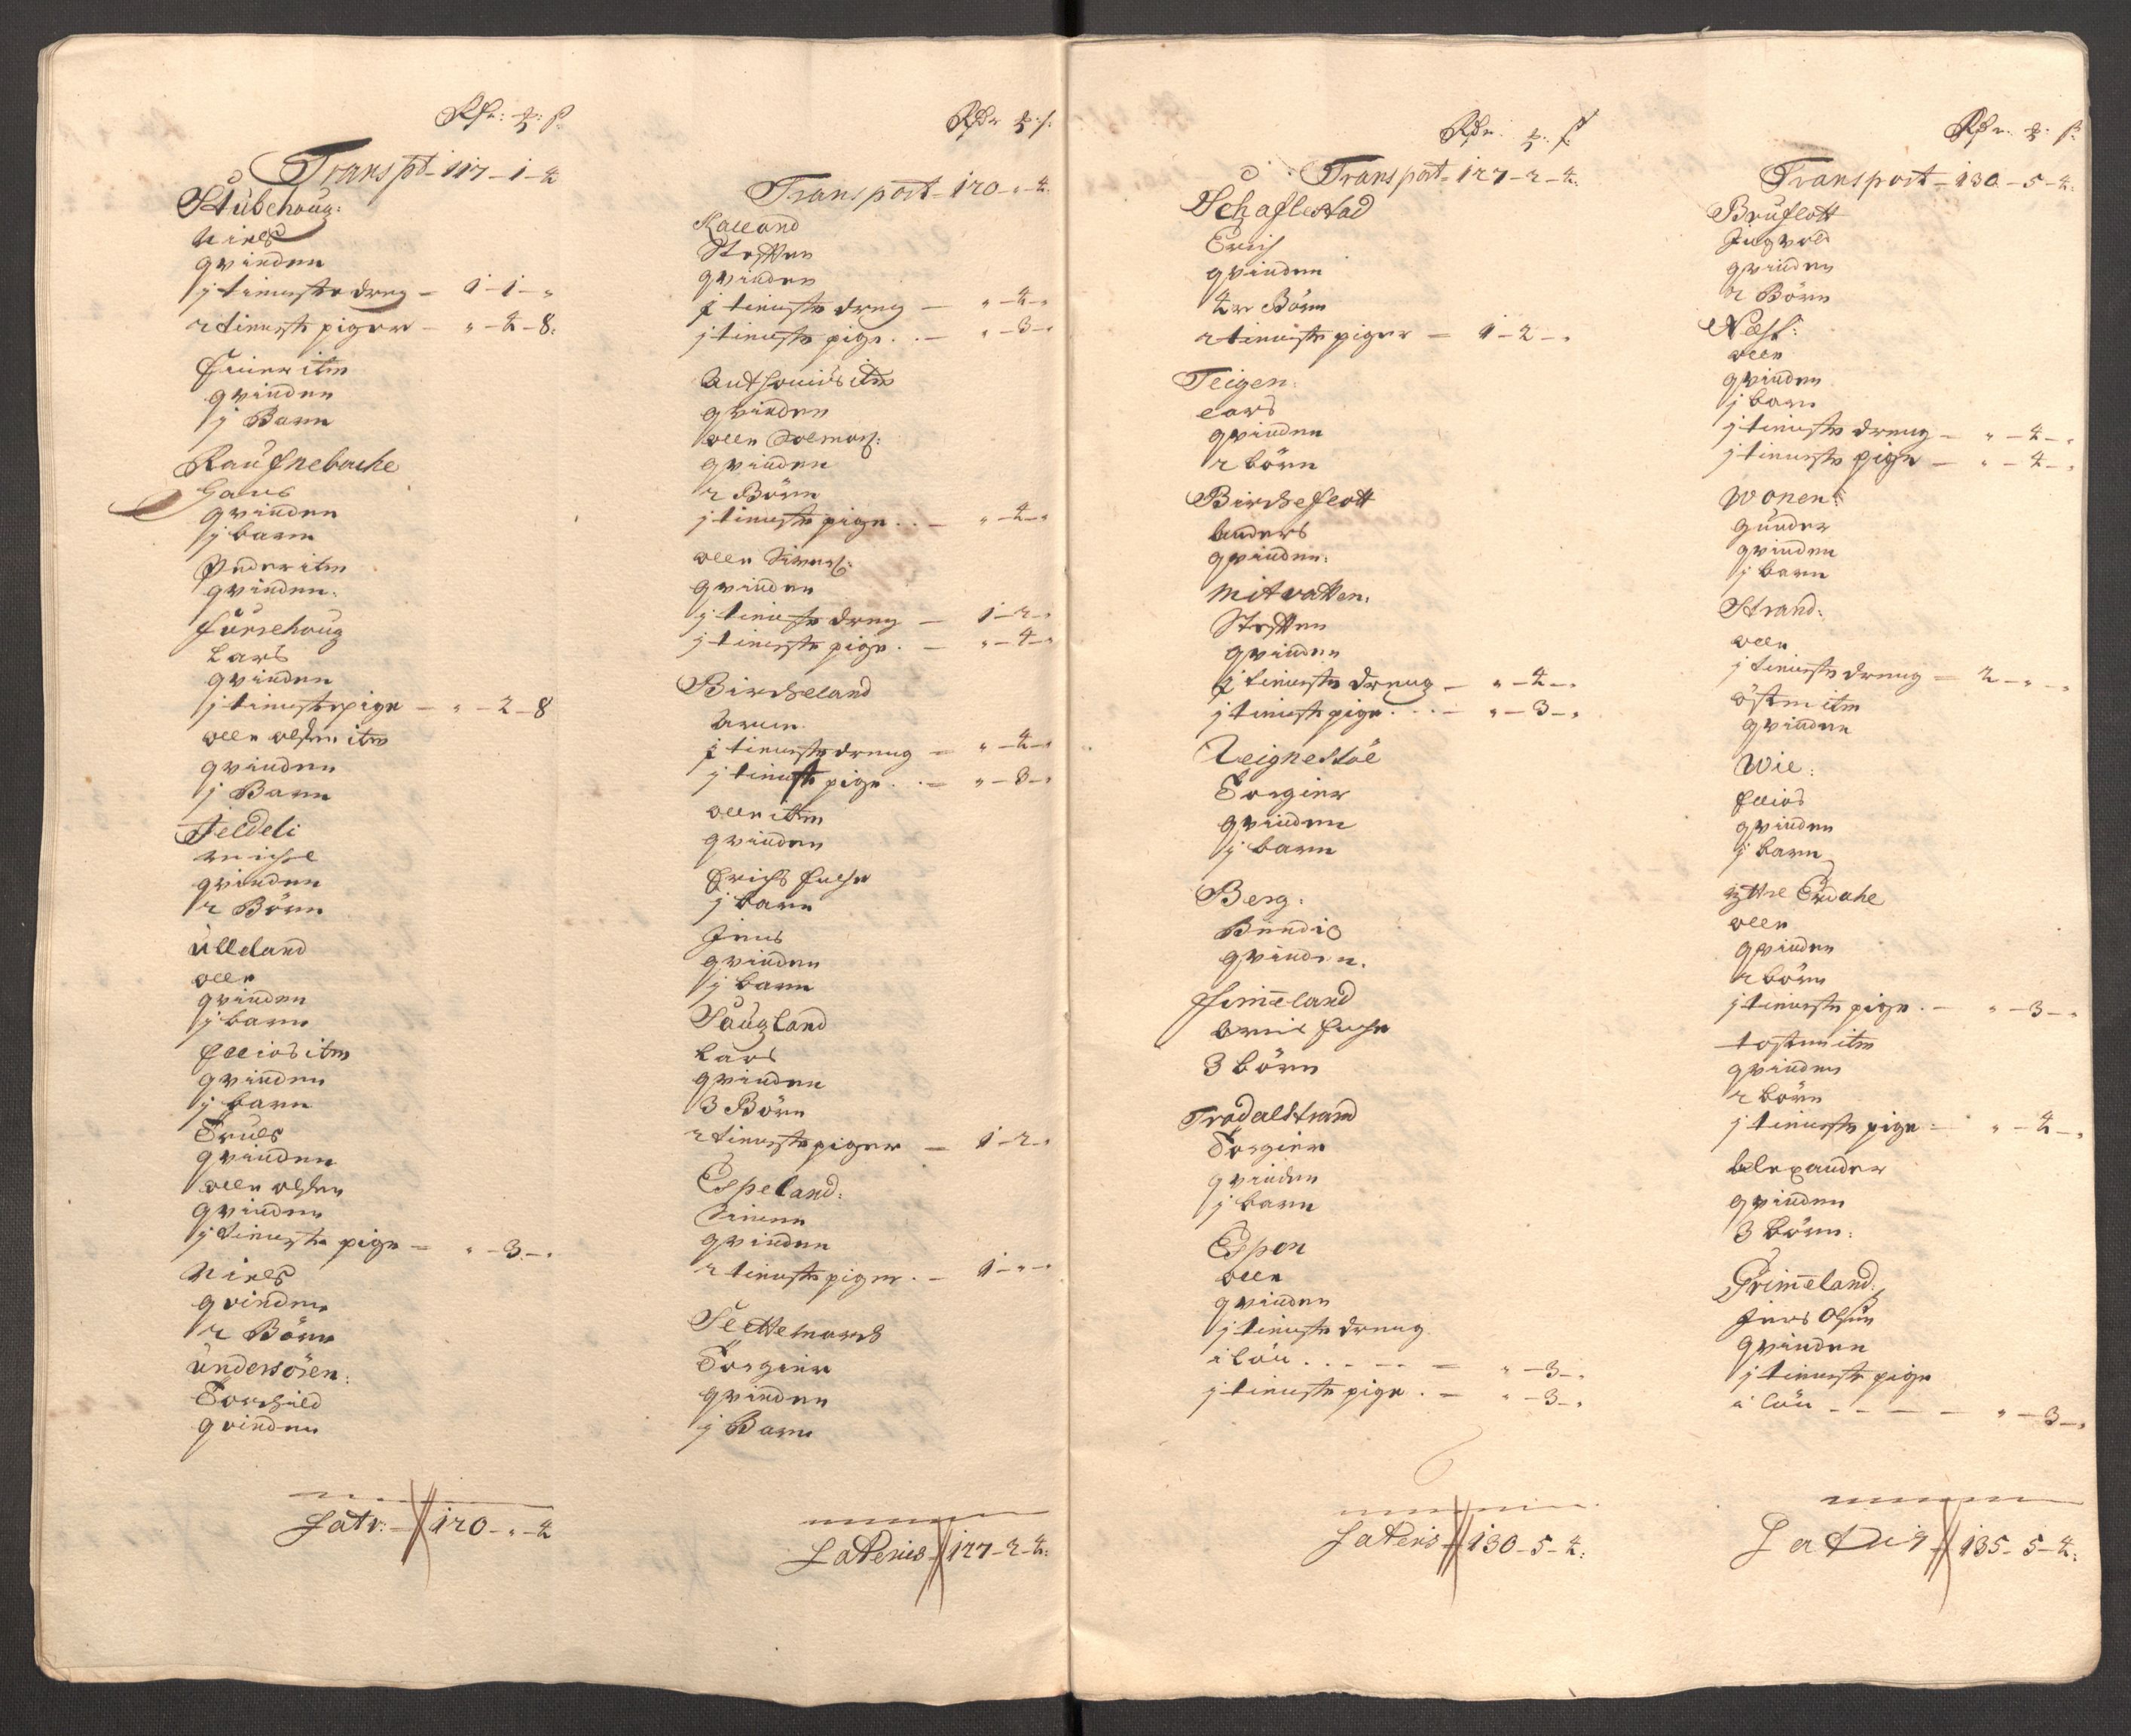 Rdr: ℔: ß:
Transpt - 117 - 1 - 4
Stubehoug:
Niels
qvinden
j tieniste dreng - 1 - 1 - "
2 tieniste piger - " - 4 - 8:
Einer itm
qvinden
j Barn
Raufnebacke
Hans
qvinden
j barn
Peder itm
qvinden.
Furrehoug
Lars
qvinden
j tieniste pige - " - 2 - 8
olle olsen itm
qvinden
j Barn
Feldeli
michel
qvinden
2 Börn
Ulleland
olle
qvinden
j barn
Ellias itm
qvinden
j barn
Truls
qvinden
olle olsen
qvinden
j tieniste pige - " - 3 - "
Niels
qvinden
2 Börn
Undersöen:
Torchild
qvinden
Latr: - 120 - " - 4

Rdr ℔ ß:
Transport - 120 - " - 4
Kalland
Steffen
qvinden
j tieniste dreng - " - 4 - "
j tieniste pige . . - " - 3 - "
Anthonius itm
qvinden
olle Solmos:
qvinden
2 Börn
j tieniste pige . . - " - 4 - "
olle Sivers:
qvinden
j tieniste dreng - 1 - 2 - "
j tieniste pige . - " - 4 - "
Bircheland
Arne
j tieniste dreng - " - 4 - "
j tieniste pige . . - " - 3 - "
olle itm
qvinden
Erichs Enche
j barn
Jens
qvinden
j barn
Saugland
Lars
qvinden
3 Börn
2 tieniste piger - 1 - 2 - "
Espeland:
Simen
qvinden
2 tieniste piger . - 1 - " - "
Settemarch
Torgier
qvinden
j Barn
Lateris - 127 - 2 - 4:

Rdr. ℔. ß
Transport - 127 - 2 - 4:
Schaflestad
Erich
qvinden
4re Börn
2 tieniste piger - 1 - 2 - "
Teigen:
Lars
qvinden
2 börn
Bircheflott
Anders
qvinden:
Mitvatten.
Steffen
qvinden
j tieniste dreng - " - 4 - "
j tieniste pige . . . - " - 3 - "
Leignestöl
Torgier
qvinden
j barn
Berg:
Bendix
qvinden.
Himeland
Arnis Enche
3 börn
Tradalstrand
Torgier
qvinden
j barn
Espen
olle
qvinden
j tieniste dreng
i lön . . - - - - " - 3 - "
j tieniste pige . - " - 3 - "
Lateris - 130 - 5 - 4:

Rdr. ℔. ß:
Transport - 130 - 5 - 4:
Bruflott
Ingvold
qvinden
2 Börn
Nesf:
olle
qvinden
j barn
j tieniste dreng - " - 4 - "
j tieniste pige - " - 4 - "
Wonen:
Gunder
qvinden
j barn
Strand:
olle
j tieniste dreng - 2 - " - "
östen itm
qvinden
Wie:
Ellias
qvinden
j barn
yttre Erdahl
olle
qvinden
2 börn
j tieniste pige . - " - 3 - "
tosten itm
qvinden
2 börn
j tieniste pige - " - 4 - "
Alexander
qvinden
3 börn:
Grimeland:
Jens Olsen
qvinden
j tieniste pige
i lön - - - - " - 3 - "
Lateris - 135 - 5 - 4: